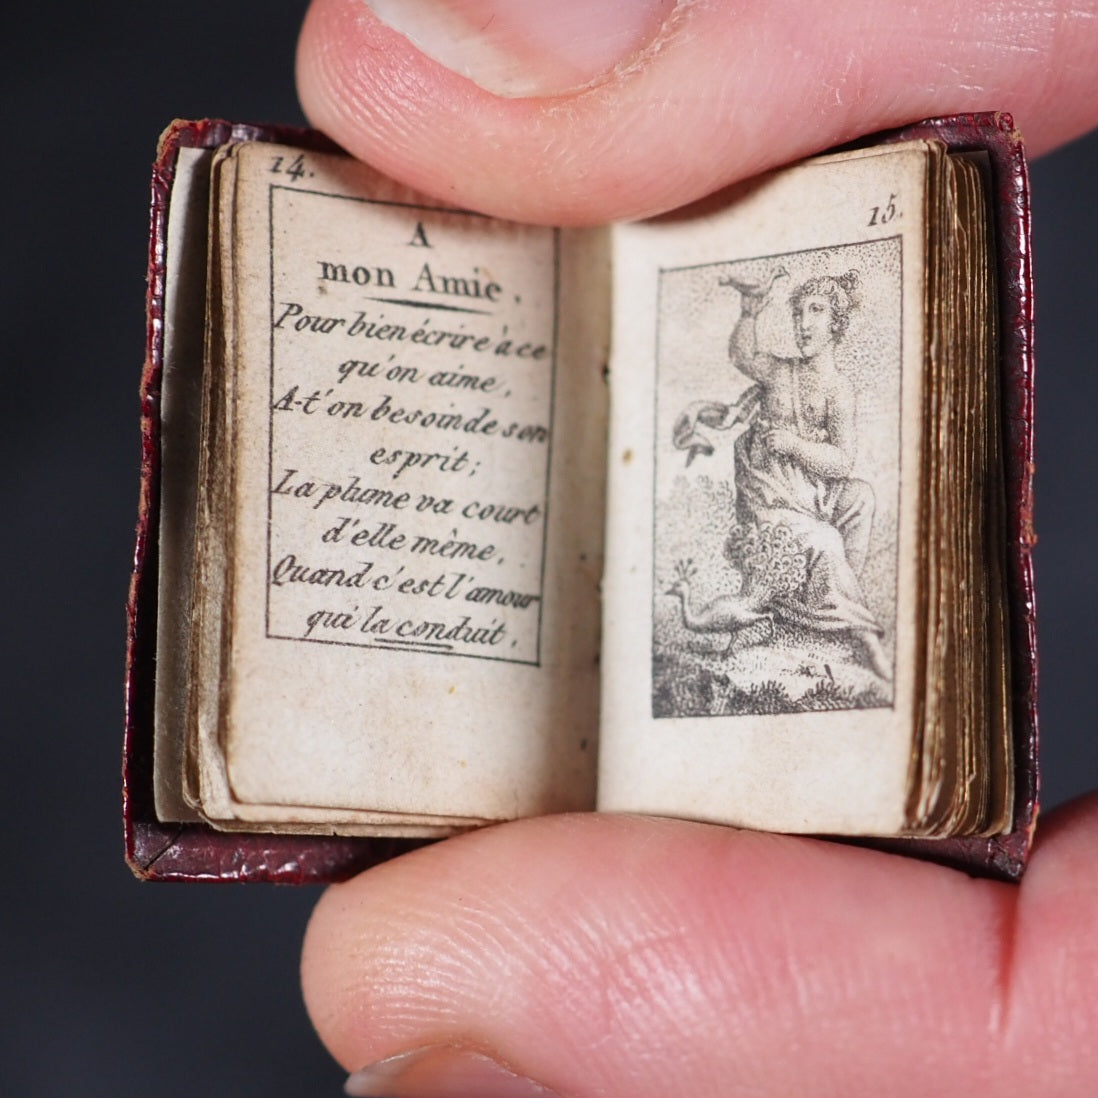 14.
A
mon Amie.
Pour bien écrire à ce
qu'on aime,
A-t'on besoin de son
esprit;
La plume va court
d'elle même,
Quand c'est l'amour
qui la conduit.
15.